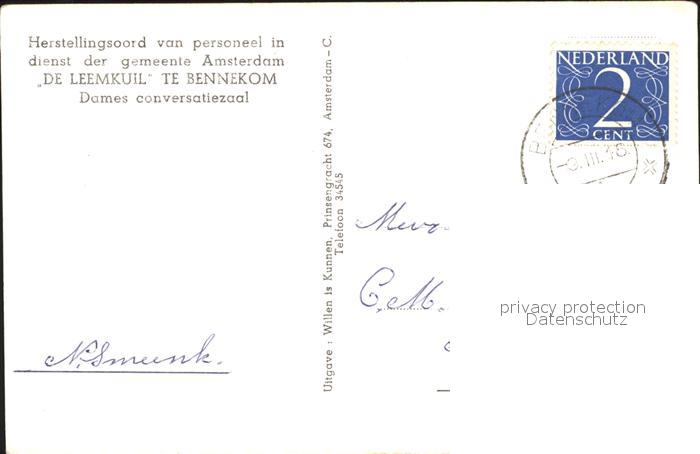 Herstellingsoord van personeel in
dienst der gemeente Amsterdam
„DE LEEMKUIL" TE BENNEKOM
Dames conversatiezaal
N. Smeenk.
Uitgave : Willen is Kunnen, Prinsengracht 674, Amsterdam – C.
Telefoon 34545
NEDERLAND
2
CENT
C. M.
privacy protection
Datenschutz